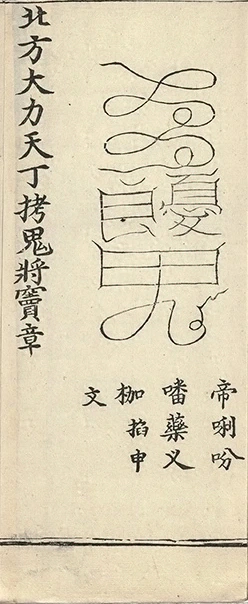 帝唎吩
㗖藥义
枷掐申
文
北方大力天丁拷鬼將竇章